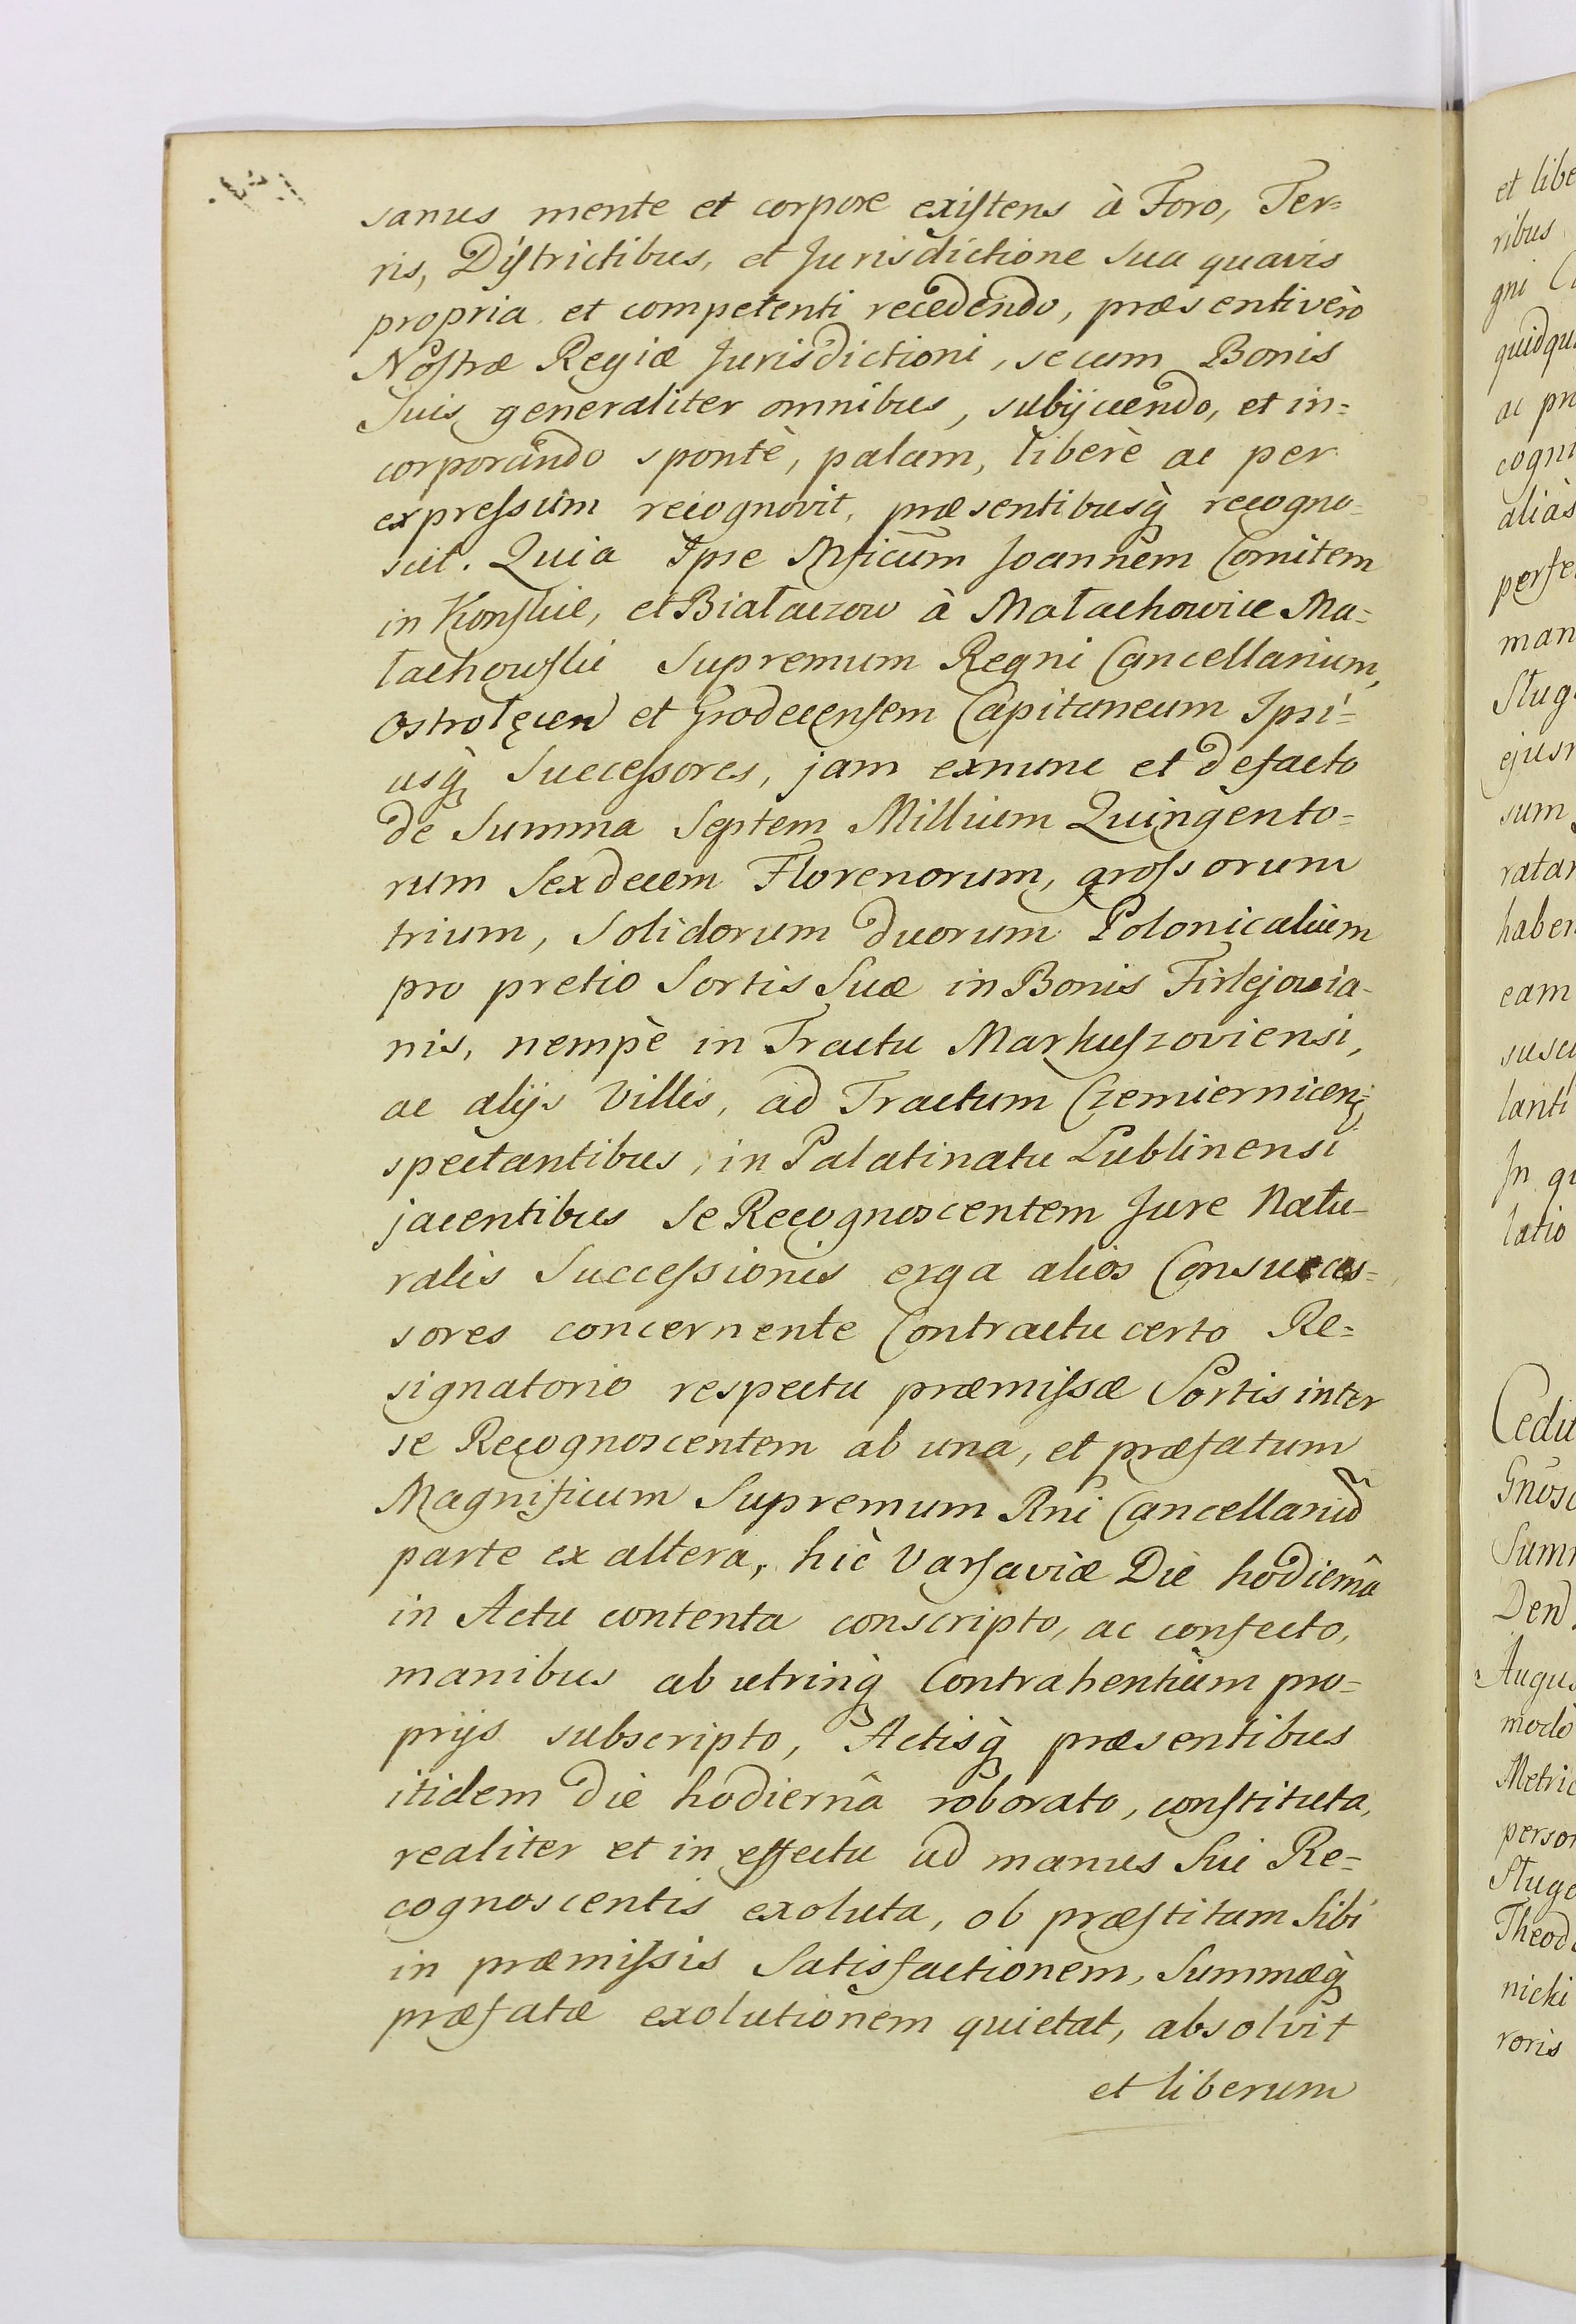 sanus mente et corpore existens à Foro, Ter=
ris, Districtibus, et Jurisdictione sua quavis
propria et competenti recedendo, præsenti verò
Nostræ Regiæ Jurisdictioni, se cum Bonis
suis generaliter omnibus, subijciendo, et in=
corporando spontè, palam, liberè ac per
expressum recognovit, præsentibusq̀ recogno-
scit. Quia Ipse Mficum Joannem Comitem
in Konskie, et Białaczow à Małachowice Ma=
łachowski Supremum Regni Cancellarium,
Ostrołęcen et Grodecensem Capitaneum Ipsi=
usq̀ Successores, jam exnunc et defacto
de Summa Septem Millium Quingento=
rum Sexdecem Florenorum, grossorum
trium, Solidorum duorum Polonicalium
pro pretio Sortis Suæ in Bonis Firlejovia-
nis, nempè in Tractu Markuszoviensi,
ac alijs Villis, ad Tractum Czemiernicen:
spectantibus, in Palatinatu Lublinensi
jacentibus se Recognoscentem Jure Natu-
ralis Successionis erga alios Consucces=
sores concernente Contractu certo Re=
signatorio respectu præmissæ Sortis inter
se Recognoscentem ab una, et præfatum
Magnificum Supremum Rni Cancellariũ
parte ex altera, hic Varsaviæ Die hodiernâ
in Actu contenta conscripto, ac confecto,
manibus ab utrinq̀ Contrahentium pro=
prijs subscripto, Actisq̀ præsentibus
itidem Die hodiernâ roborato, constituta,
realiter et in effectu ad manus Sui Re=
cognoscentis exoluta, ob præstitam Sibi
in præmissis Satisfactionem, Summæq̀
præfatæ exolutionem quietat, absolvit
et liberum
et libe
ribus
gni C
quidqu
ac pr
cogni
aliàs
perfe
man
Slug
ejusm
sum
ratam
haber
eam
susci
lanti
In qu
latio
Cedit
Gnosc
Summ
Den.
Augus
modò
Metric
person
Sluge
Theod
nicki
roris